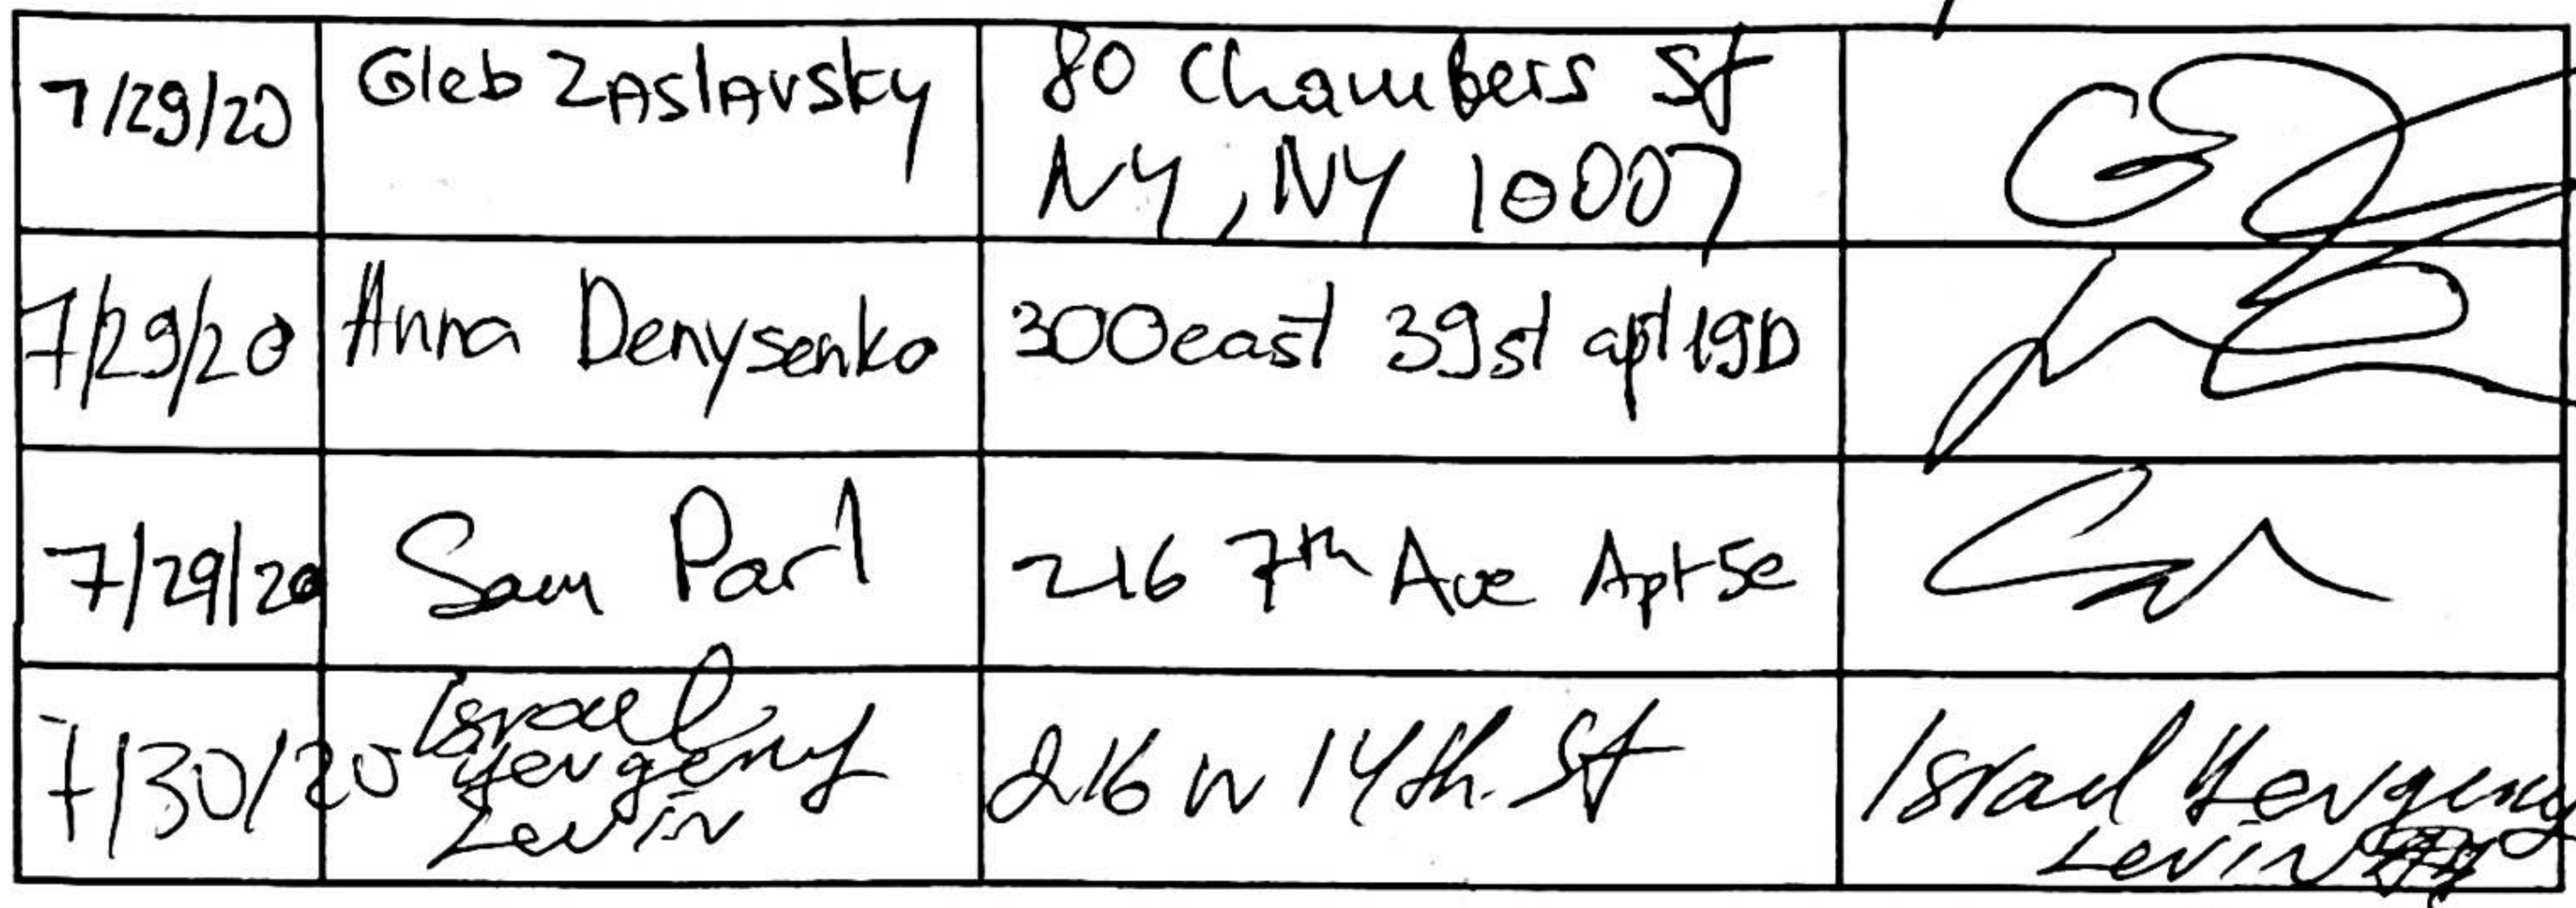 7/29/20 Gleb ZASlAVSky 80 Chambers St
NY, NY 10007
7/29/20 Anna Denysenko 300 east 39 st apt 19D
7/29/20 Sam Parl 216 7th Ave Apt 5e
7/30/20 Israel
Yevgeny
Levin
216 W 14th. St
Israel Yevgeny
Levin